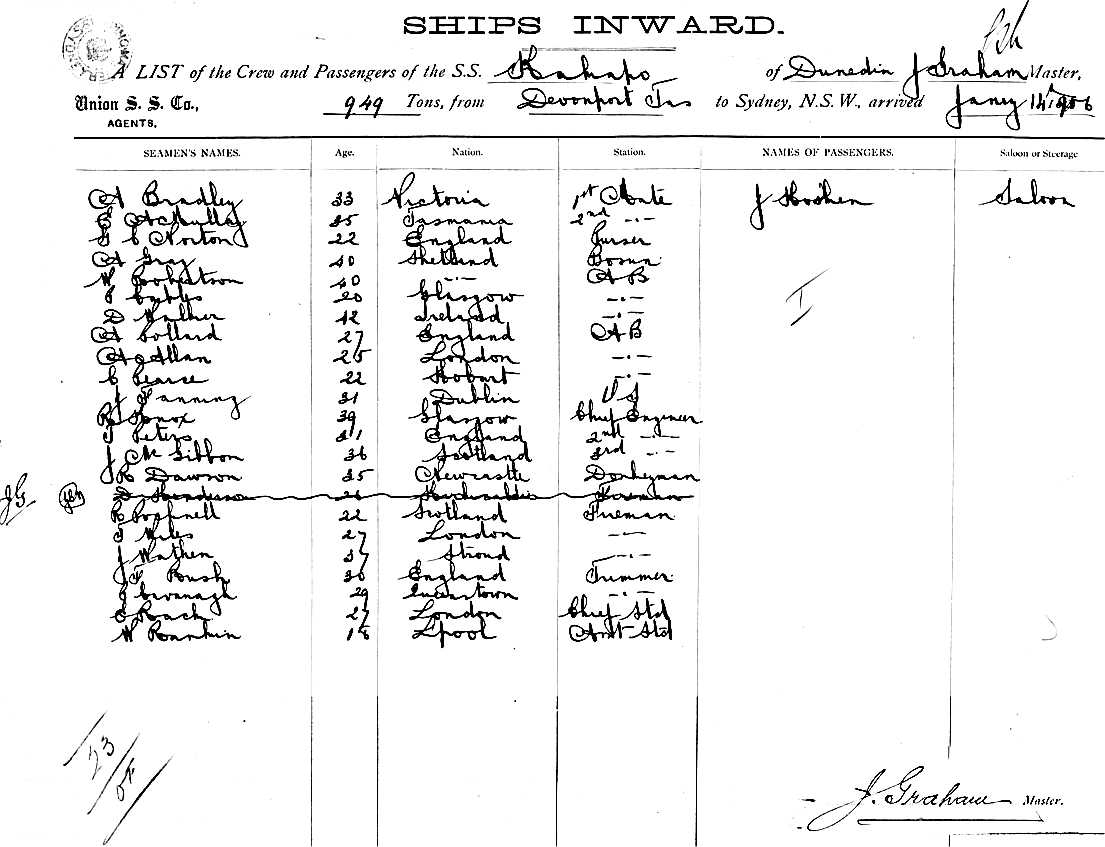 SHIPS INWARD.
A LIST of the Crew and Passengers of the S.S. Kahapo of Dunedin J Graham Master,
Union S. S. Co., 949 Tons, from Devonport Tas to Sydney, N.S.W., arrived Jany 14th 1906
AGENTS.
SEAMEN'S NAMES. Age. Nation. Station. NAMES OF PASSENGERS. Saloon or Steerage
A Bradley 33 Victoria 1st Mate J Saloon
35 Tasmania 2nd -.-
C Norton 22 England Purser
A Gray 40 Shetland Bosun
W Robertson 40 -.- A B
20 Glasgow -.-
D Walker 42 Ireland -.-
A Collard 27 England A B
A Allan 25 London -.-
C Pearse 22 Hobart -.-
J Fanning 31 Dublin O S
R Knox 39 Glasgow Chief Engineer
Peters 31 England 2nd -.-
J McGibbon 36 Scotland 3rd -.-
J R Dawson 35 Newcastle Donkeyman
JG D Henderson 26 Fireman
R 22 Scotland Fireman
Miles 27 London -.-
J Wathen 37 Stroud -.-
J F Rush 30 England Trimmer
J Cavanagh 29 Queenstown -.-
27 London Chief Std
W Rankin 18 Lpool Asst Std
23
J. Graham Master.